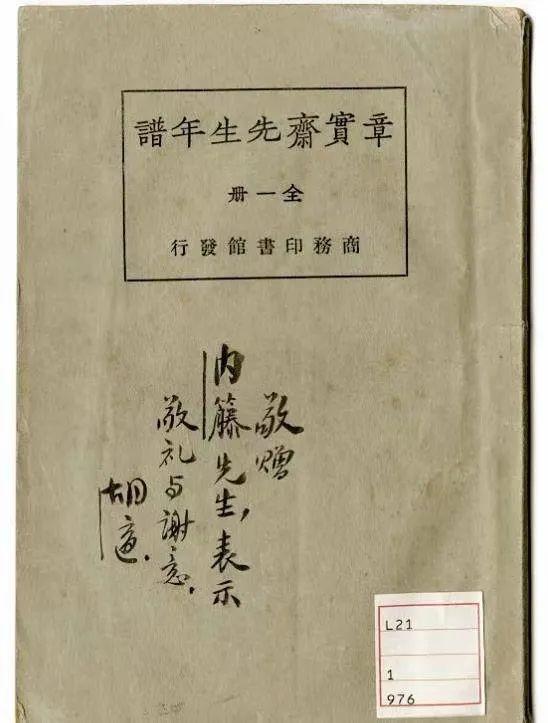 章實齋先生年譜
全一冊
商務印書館發行
敬贈
内藤先生，表示
敬礼与謝意.
胡適.
L21
1
976